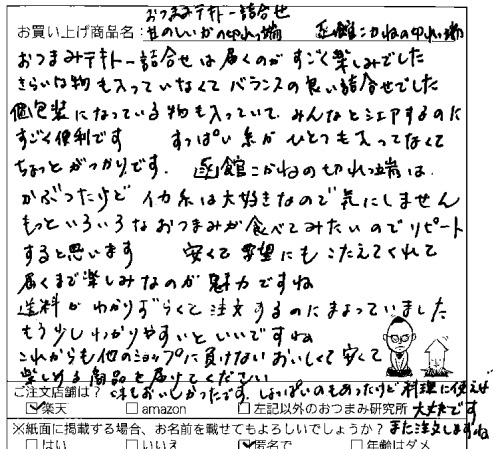 おつまみテキトー詰合せ
お買い上げ商品名: 甘のしいかの切れっ端 函館こがねの切れっ端
おつまみテキトー詰合せは届くのがすごく楽しみでした
きらいな物も入っていなくてバランスの良い詰合せでした
個包装になっている物も入っていて、みんなとシェアするのに
すごく便利です すっぱい系がひとつも入ってなくて
ちょっとがっかりです。函館こがねの切れっ端は
かぶったけどイカ系は大好きなので気にしません
もっといろいろなおつまみが食べてみたいのでリピート
すると思います 安くて要望にもこたえてくれて
届くまで楽しみなのが魅力ですね
送料がわかりずらくて注文するのにまよっていました
もう少しわかりやすいといいですね
これからも他のショップに負けないおいしくて安くて
楽しめる商品を届けてください
ご注文店舗は? 味もおいしかったです。しょっぱいのもあったけど料理に使えば
楽天 amazon 左記以外のおつまみ研究所 大丈夫です
※紙面に掲載する場合、お名前を載せてもよろしいでしょうか? また注文しますね
はい いいえ 匿名で 年齢はダメ